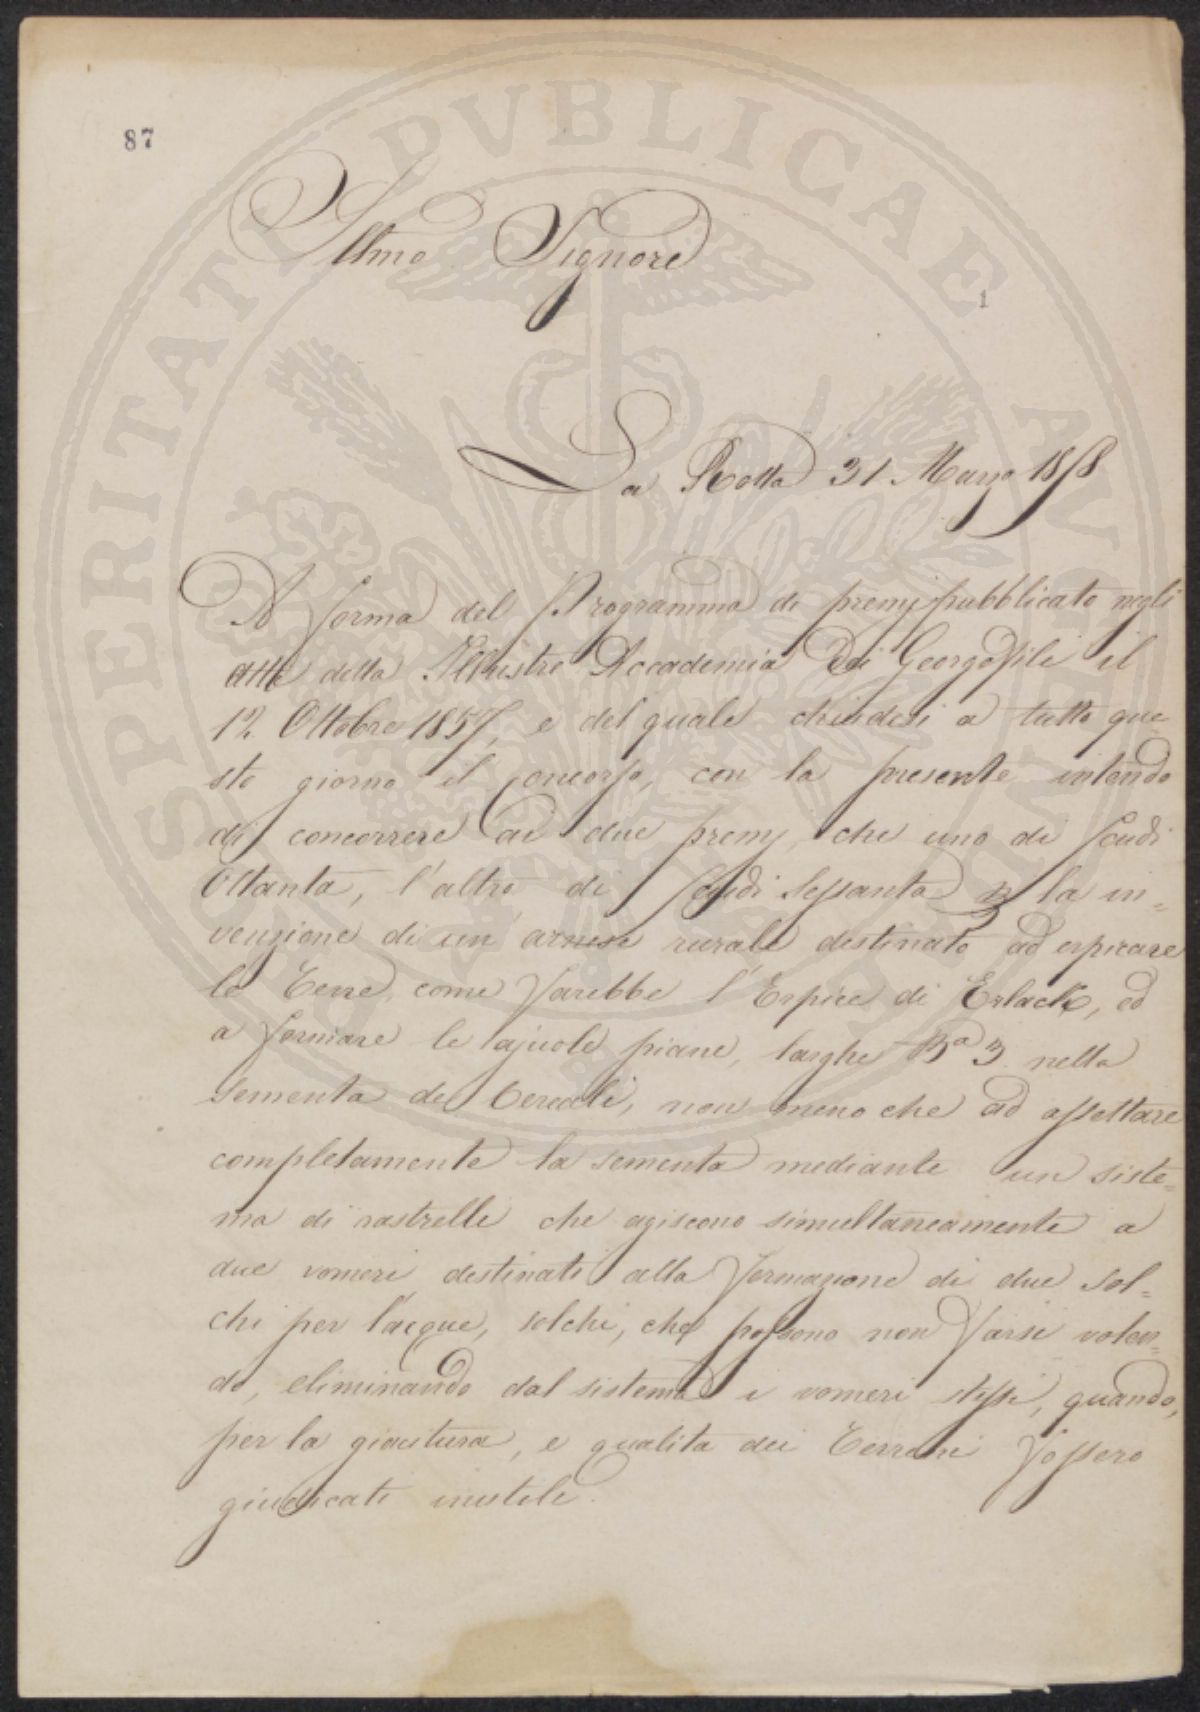 87
PROSPERITATI PVBLICAE AVGENDAE
Illmo Signore
1
La Rotta 31 Marzo 1858
A forma del Programma di premj pubblicato negli
Atti della Illustre Accademia Dei Georgofili il
12 Ottobre 1857, e del quale chiudesi a tutto que
sto giorno il Concorso, con la presente intendo
di concorrere ai due premj, che uno di Scudi
Ottanta, l'altro di Scudi Sessanta p la in=
venzione di un' arnese rurale destinato ad erpicare
le Terre, come Sarebbe l'Erpice di Erlack, ed
a formare le ajuole piane, larghe Ba 3 nella
sementa de Cereali, non meno che ad assettare
completamente la sementa mediante un siste=
ma di rastrelli che agiscono simultaneamente a
due vomeri destinati alla formazione di due sol=
chi per l'acque, solchi, che possono non farsi volen=
do, eliminando dal sistema i vomeri stessi, quando,
per la giacitura, e qualita dei Terreni fossero
giudicati inutili.